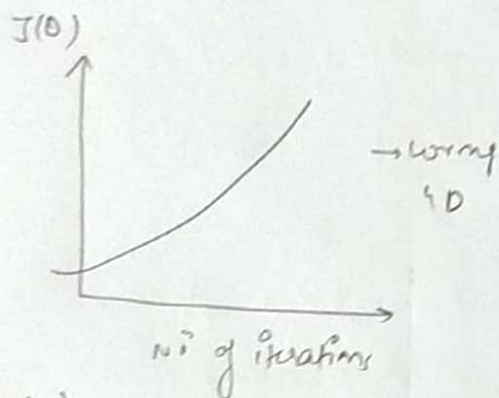 J(θ)
→ wrong
GD
no of iterations